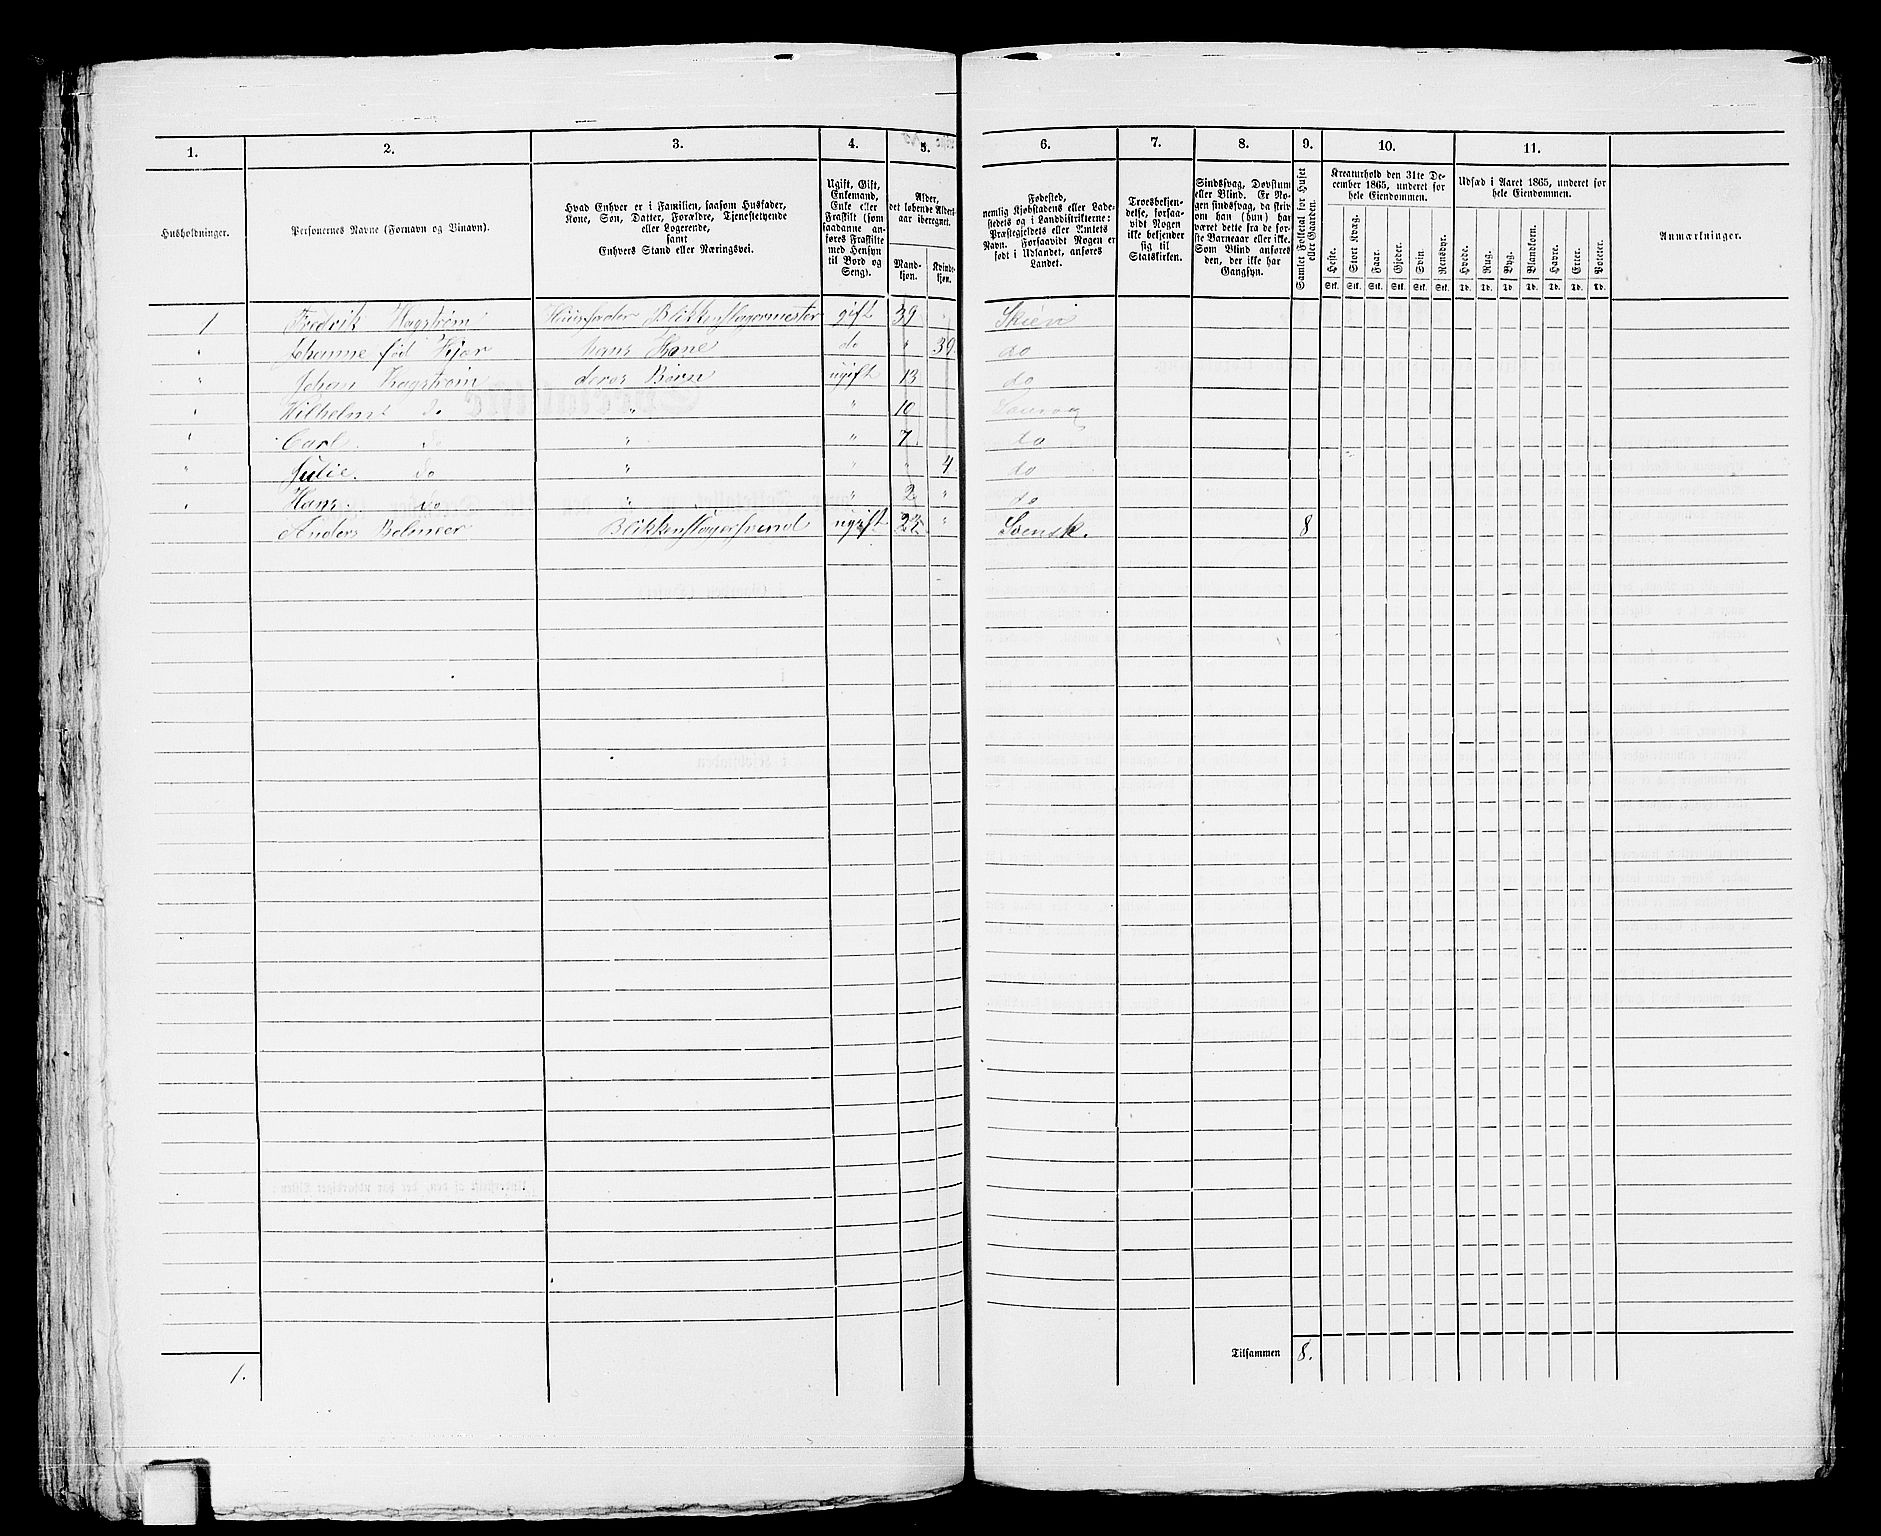 1. 2. 3. 4. 5. 6. 7. 8. 9. 10. 11.
Husholdninger.
Personernes Navne (Fornavn og Tilnavn).
Hvad Enhver er i Familien, saasom Husfader,
Kone, Søn, Datter, Forældre, Tjenestetyende
eller Logerende,
samt
Enhvers Stand eller Næringsvei.
Ugift, Gift,
Enkemand,
Enke eller
Fraskilt (som
saadanne an-
føres Fraskilte
med Hensyn
til Bord og
Seng).
Alder,
det løbende Alders-
aar iberegnet.
Mand-
kjøn.
Kvinde-
kjøn.
Fødested,
nemlig Kjøbstadens eller Lade-
stedets og i Landdistrikterne:
Præstegjeldets eller Amtets
Navn. Forsaavidt Nogen er
født i Udlandet, anføres
Landet.
Troesbekjen-
delse, forsaa-
vidt Nogen
ikke bekjender
sig til
Statskirken.
Sindssvag, Døvstum
eller Blind. Er No-
gen sindssvag, da skrives
om han (hun) har
været dette fra de før-
ste Barneaar eller ikke.
Som Blind anføres
den, der ikke har
Gangsyn.
Samlet Folketal for Huset
eller Gaarden.
Kreaturhold den 31te De-
cember 1865, underet for
hele Eiendommen.
Heste. Stort Kvæg. Faar. Gjeder. Svin Rensdyr.
Stk. Stk. Stk. Stk. Stk. Stk.
Udsæd i Aaret 1865, underet for
hele Eiendommen.
Hvede. Rug. Byg. Blandkorn. Havre. Erter. Poteter.
Td. Td. Td. Td. Td. Td. Td.
Anmærkninger.
1 Fredrik Hagstrøm Huusfader Blikkenslagermester gift 39 Skien
" Johanne fød Hans Kone do " 39 do
" Johan Hagstrøm deres Børn ugift 13 do
" Wilhelm do " " 10
" Carl do " " 7 do
" Julie do " " " 4 do
" Hans do " " 2 " do
Anders Blikkenslagersvend ugift 22 " Svensk. 8
Tilsammen 8.
1.